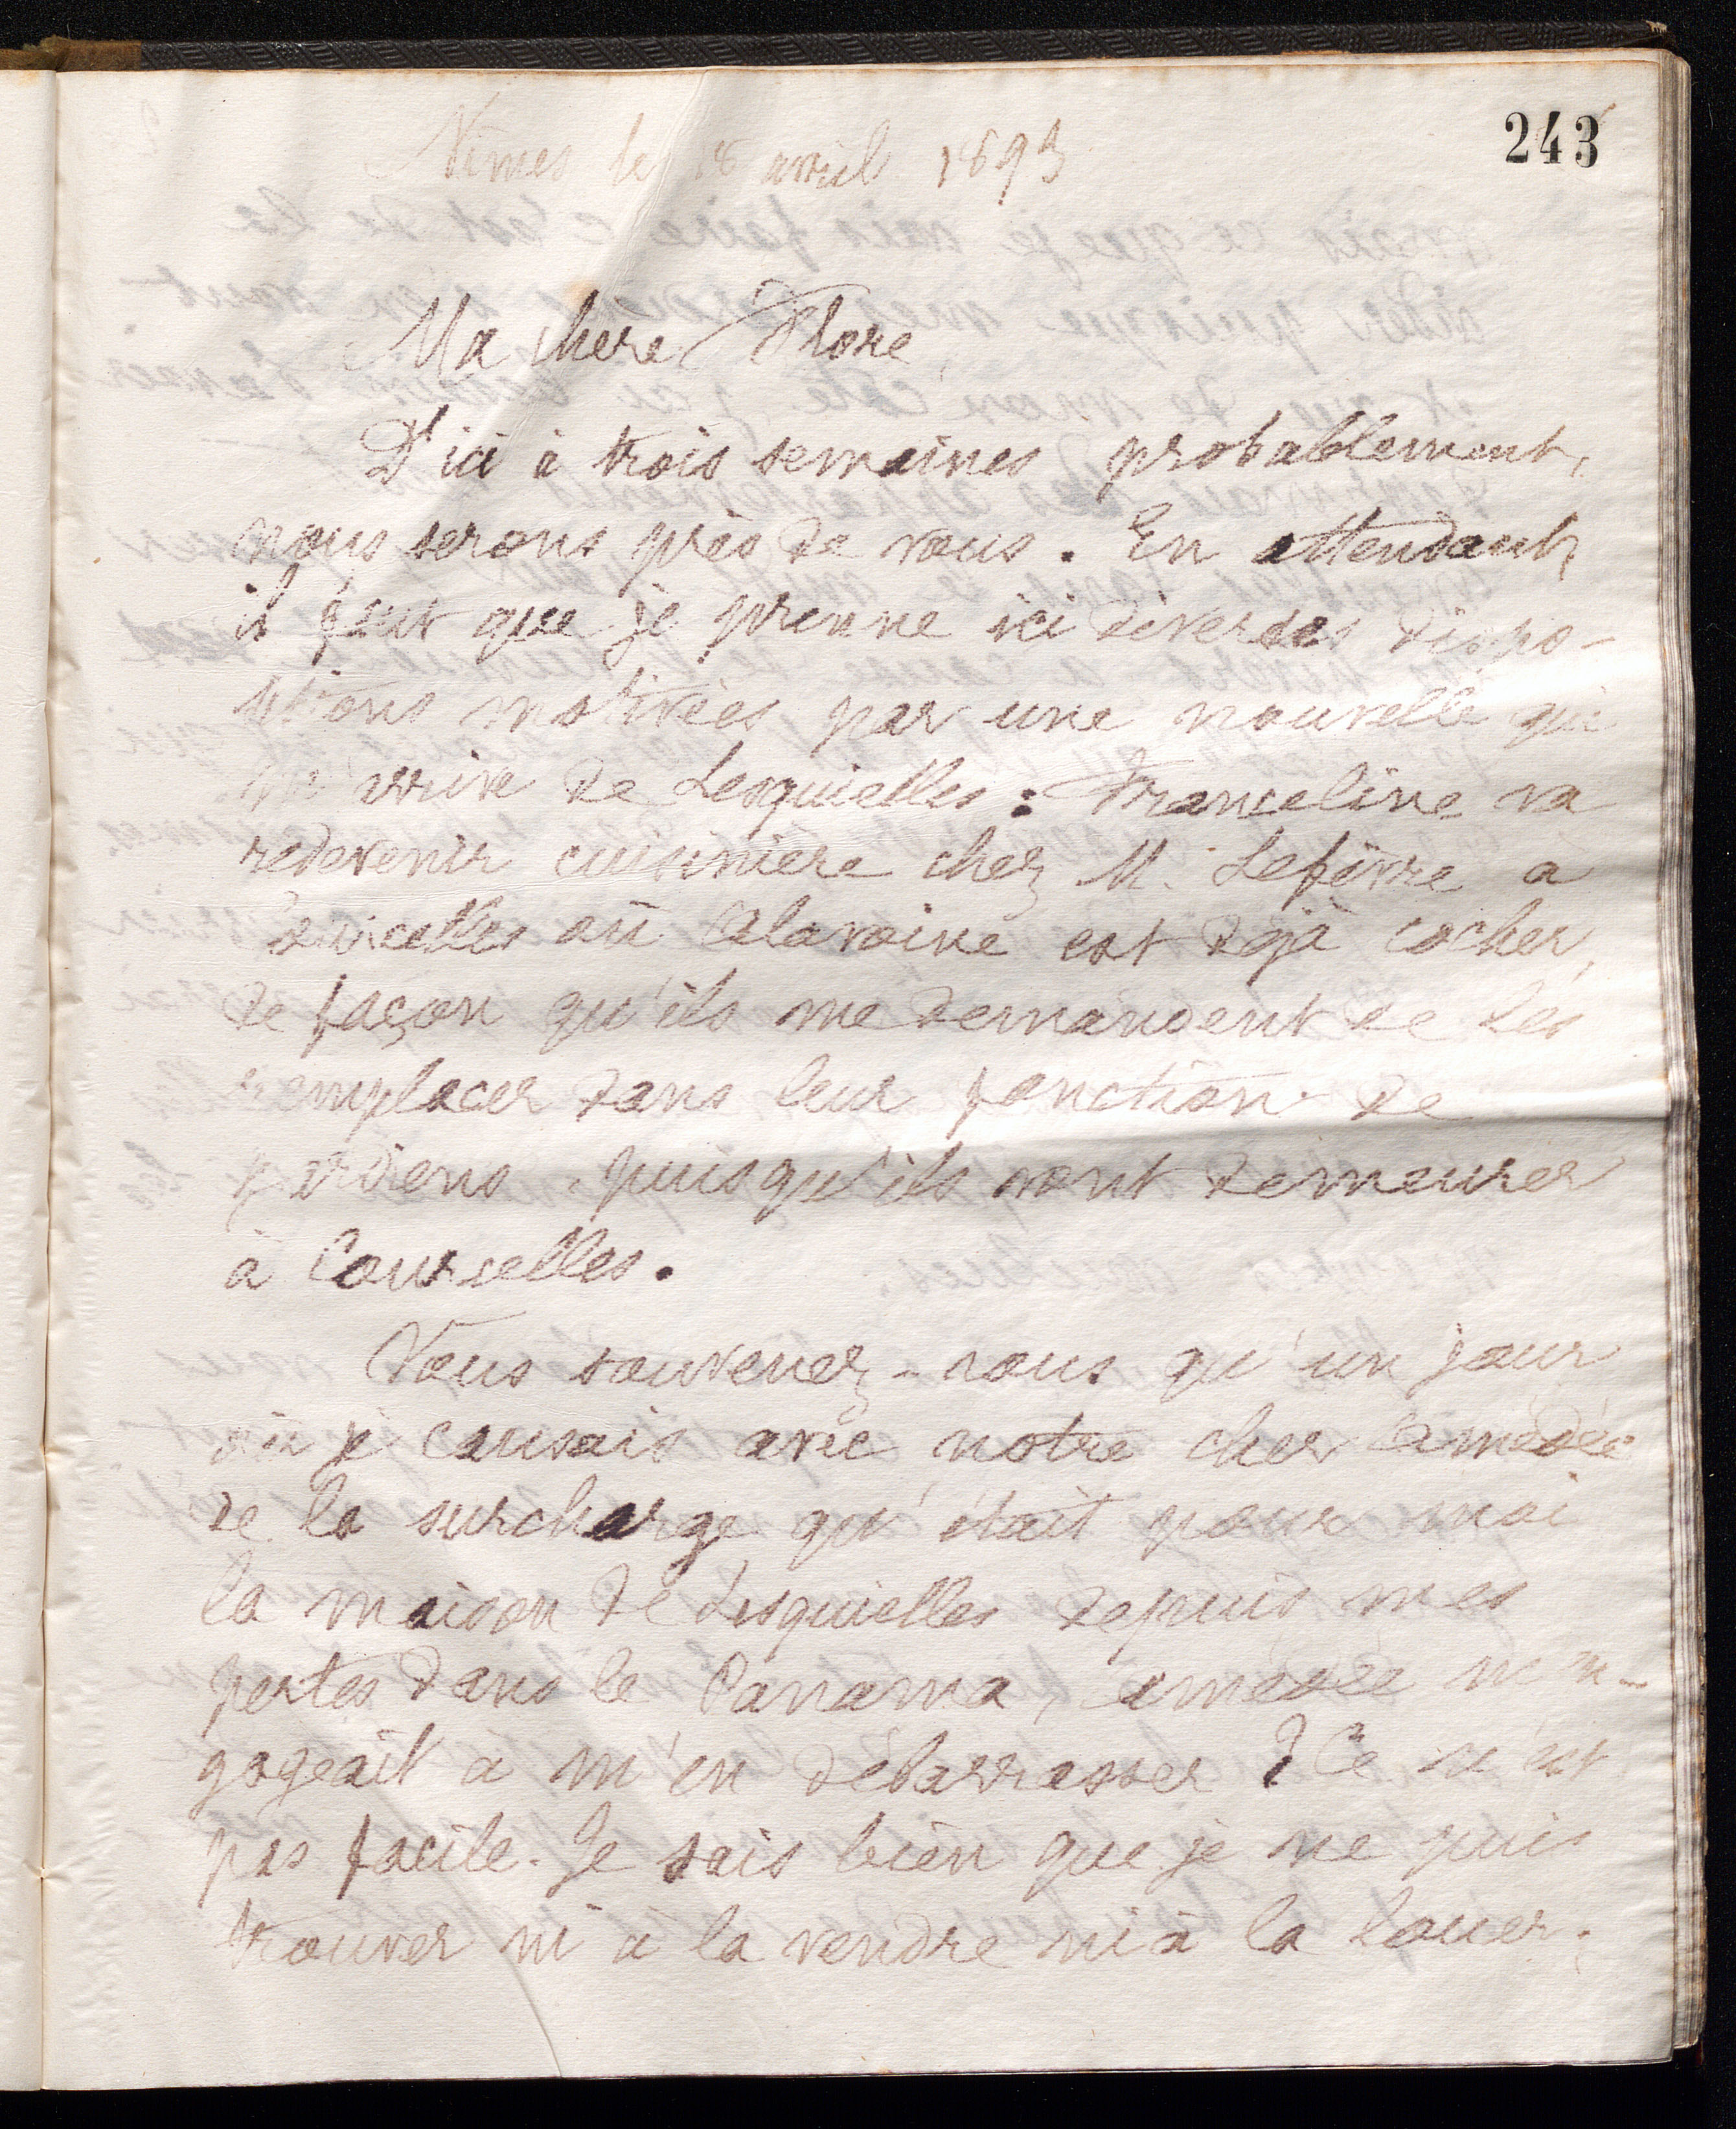 243
Nîmes le 18 avril 1893
Ma chère Flore,
D'ici à trois semaines probablement,
nous serons près de vous. En attendant,
il faut que je prenne ici diverses dispo-
sitions motivées par une nouvelle qui
m'arrive de Lesquielles : Franceline va
redevenir cuisinière chez M. Lefèvre à
Courcelles où Alavoine est déjà cocher,
de façon qu'ils me demandent de les
remplacer dans leur fonction de
gardiens, puisqu'ils vont demeurer
à Courcelles.
Vous souvenez-vous qu'un jour
où je causais avec notre cher Amédée
de la surcharge qu'était pour moi
la maison de Lesquielles depuis mes
pertes dans le Panama, Amédée m'en-
gageait à m'en débarrasser ? Ce n'est
pas facile. Je sais bien que je ne puis
trouver ni à la vendre ni à la louer ;